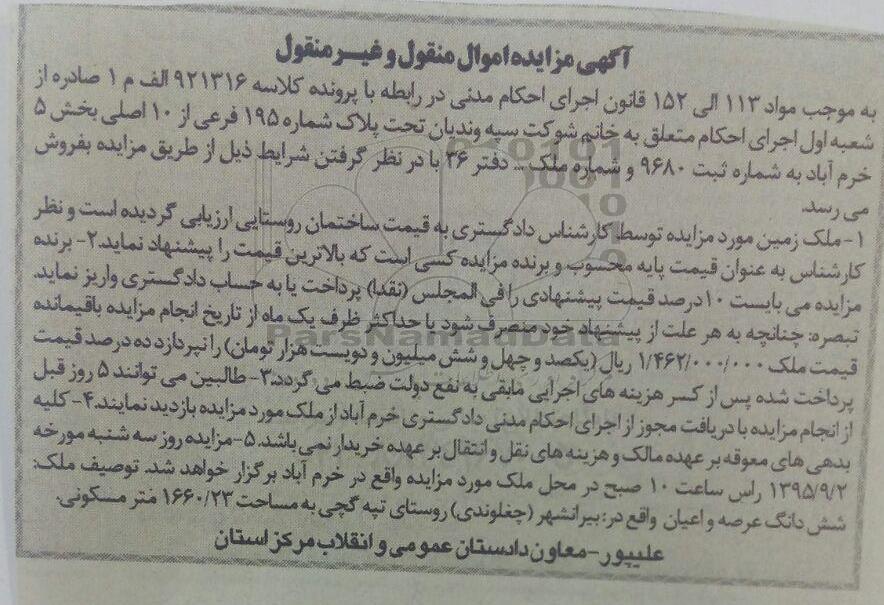 آگهی مزایده اموال منقول و غیر منقول
به موجب مواد ۱۱۳ الی ۱۵۲ قانون اجرای احکام مدنی در رابطه با پرونده کلاسه ۹۲۱۳۱۶ الف م ۱ صادره از
شعبه اول اجرای احکام متعلق به خانم شوکت سپه وندیان تحت پلاک شماره ۱۹۵ فرعی از ۱۰ اصلی بخش ۵
خرم آباد به شماره ثبت ۹۶۸۰ و شماره ملک ... دفتر ۳۶ با در نظر گرفتن شرایط ذیل از طریق مزایده بفروش
می رسد.
۱- ملک زمین مورد مزایده توسط کارشناس دادگستری به قیمت ساختمان روستایی ارزیابی گردیده است و نظر
کارشناس به عنوان قیمت پایه محسوب و برنده مزایده کسی است که بالاترین قیمت را پیشنهاد نماید.۲- برنده
مزایده می بایست ۱۰ درصد قیمت پیشنهادی را فی المجلس (نقدا) پرداخت یا به حساب دادگستری واریز نماید.
تبصره: چنانچه به هر علت از پیشنهاد خود منصرف شود یا حداکثر ظرف یک ماه از تاریخ انجام مزایده باقیمانده
قیمت ملک ۱/۴۶۲/۰۰۰/۰۰۰ ریال (یکصد و چهل و شش میلیون و دویست هزار تومان) را نپردازد ده درصد قیمت
پرداخت شده پس از کسر هزینه های اجرایی مابقی به نفع دولت ضبط می گردد.۳- طالبین می توانند ۵ روز قبل
از انجام مزایده با دریافت مجوز از اجرای احکام مدنی دادگستری خرم آباد از ملک مورد مزایده بازدید نمایند.۴- کلیه
بدهی های معوقه بر عهده مالک و هزینه های نقل و انتقال بر عهده خریدار نمی باشد.۵- مزایده روز سه شنبه مورخه
۱۳۹۵/۹/۲ راس ساعت ۱۰ صبح در محل ملک مورد مزایده واقع در خرم آباد برگزار خواهد شد. توصیف ملک:
شش دانگ عرصه و اعیان واقع در: بیرانشهر (چغلوندی) روستای تپه گچی به مساحت ۱۶۶۰/۲۳ متر مسکونی.
علیپور- معاون دادستان عمومی و انقلاب مرکز استان
ParsNamadData